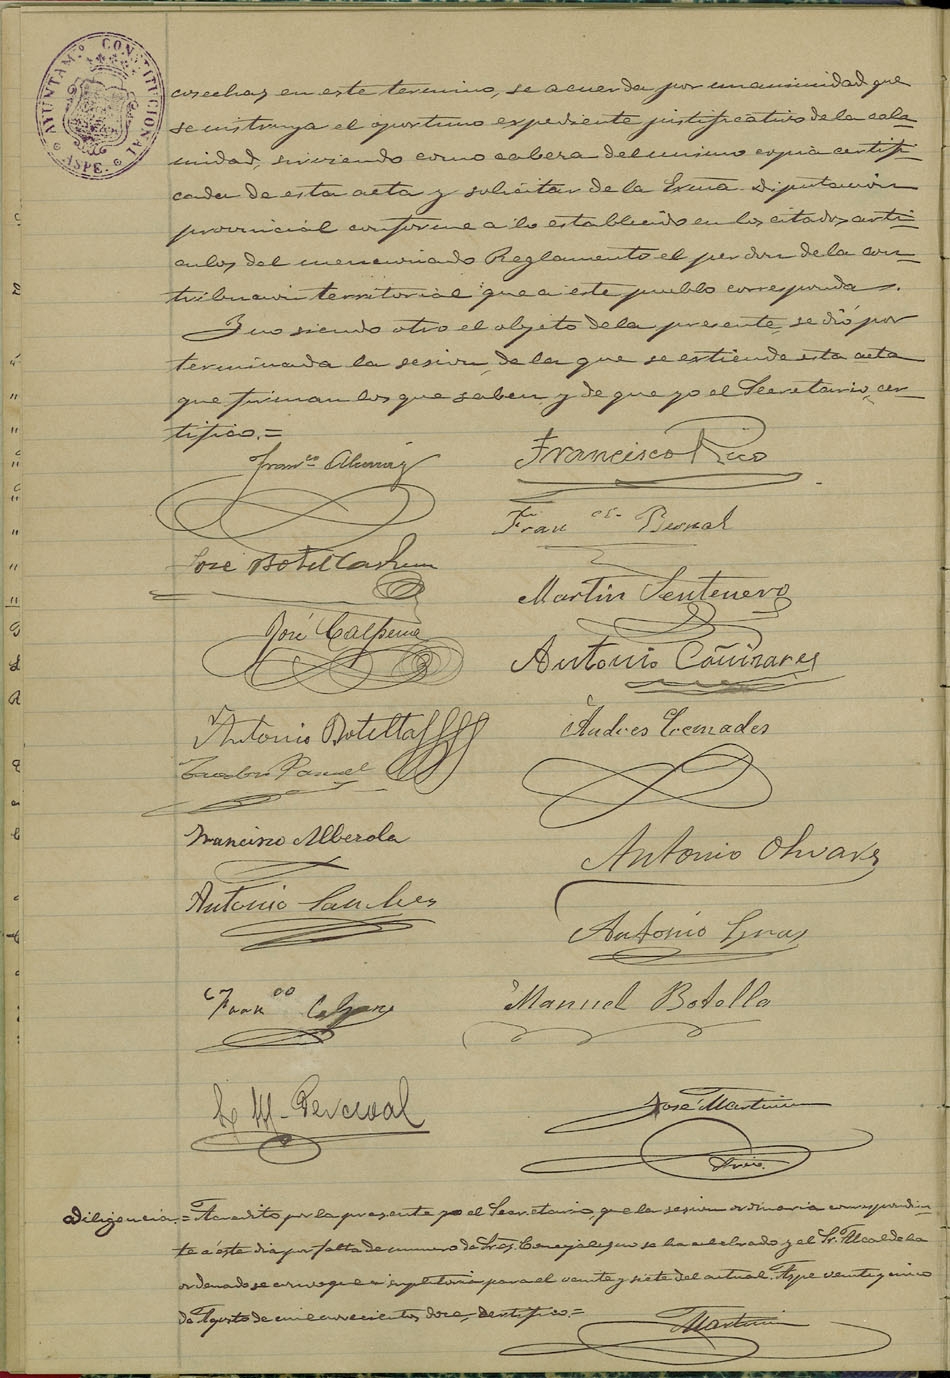 AYUNTAM.º CONSTITUCIONAL
ASPE.
cosechas en este termino, se acuerda por unanimidad que
se instruya el oportuno expediente justificativo de la cala=
midad, sirviendo como cabeza del mismo copia certifi=
cada de esta acta y solicitar de la Excma. Diputación
provincial conforme a lo establecido en los citados artí=
culos del mencionado Reglamento el perdon de la con=
tribucion territorial que a este pueblo corresponda.
Y no siendo otro el objeto de la presente, se dió por
terminada la sesion, de la que se extiende esta acta
que firman los que saben, y de que yo el Secretario, cer=
tifico.=
Franco Almiñ
Francisco Rico
Fran co. Bernal
José Botella
Martin Sentenero
José Calpena
Antonio Cañizares
Antonio Botella
Andres Cremades
Francisco Alberola
Antonio Olivares
Antonio Sanchez
Antonio Gras
Fran co
Manuel Botella
M. Percival
José Martinez
Srio.
Diligencia.= Acredito por la presente yo el Secretario que la sesion ordinaria correspondien=
te a éste dia por falta de numero de Sres. Concejales no se ha celebrado y el Sr. Alcalde ha
ordenado se convoque a supletoria para el veinte y siete del actual. Aspe veinticinco
de Agosto de mil novecientos doce, certifico.=
Martinez